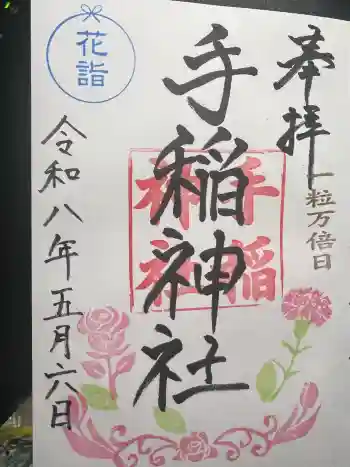 奉拝
一粒万倍日
手稲神社
手稲
神社
花詣
令和八年五月六日